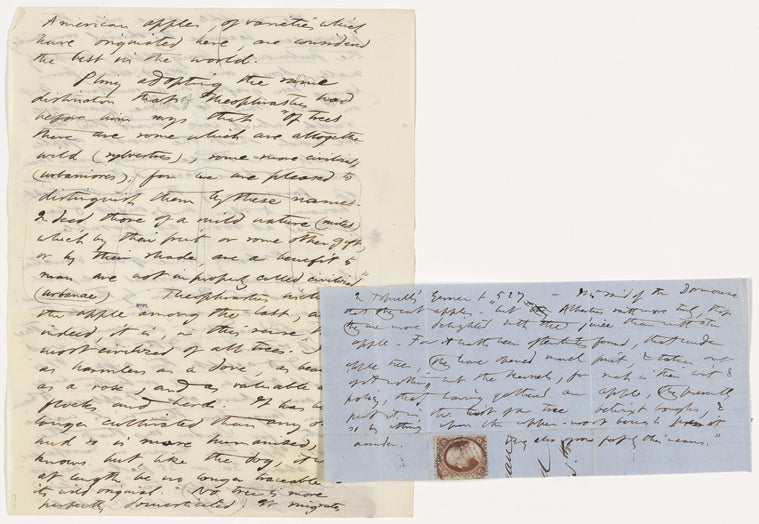 American apples, of varieties which
have originated here, are considered
the best in the world.
Pliny adopting the same
distinction that Theophrastus had
before him says that "Of trees
there are some which are altogether
wild (sylvestres), some more civilized,
(urbaniores), for we are pleased to
distinguish them by these names.
Indeed those of a mild nature (mites)
which by their fruit or some other gift
or by their shade are a benefit to
man are not improperly called civilized"
(urbanae) Theophrastus
NYPL
the apple among the last, a
indeed, it is, in this sense t
most civilized of all trees.
as harmless as a dove, as beau
as a rose, and as valuable as
flocks and herds. It has be
longer cultivated than any o
and so is more humanized,
knows but like the dog, it
at length be no longer traceable
its wild original. (No tree is more
perfectly domesticated; It migrates
In Topsell's Gesner p. 527 of the Dormouse
that they eat apples. but Albertus saith more truly, that
they are more delighted with the juice than with the
apple. For it hath been oftentimes found, that under
apple trees, they have opened much fruit, & taken out
of it nothing but the kernels, for such is their wit &
policy, that having gathered an apple, they presently
put it in the twist of a tree betwixt boughs, &
so by sitting upon the upper-most bough press it
asunder.